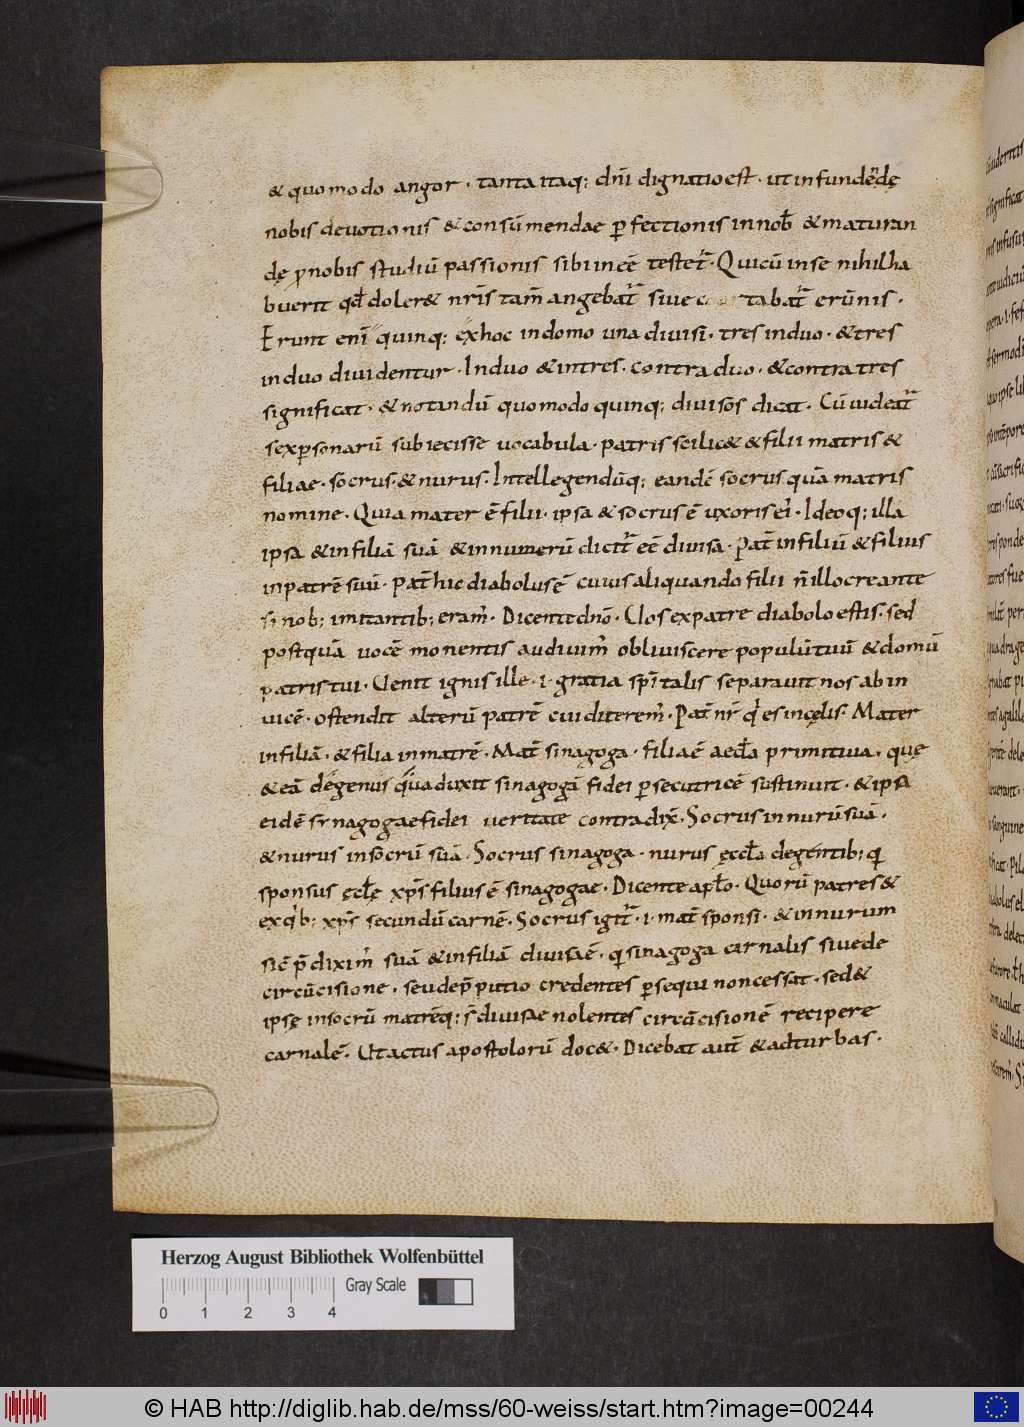 & quomodo angor · tanta itaq; dñi dignatio est · ut infundendę
nobis devotionis & consūmendae perfectionis in nob̄ & maturan
dę pro nobis studiū passionis sibi inēē testet᷑ · Quicū inse nihil ha
buerit qđ doler& nr̄is tam̄ angebat᷑ sive tabat᷑ erūnis ·
Erunt enī quinq; exhoc indomo una divisi · tres induo · & tres
induo dividentur · Induo & intres · contra duo · & contra tres
significat · & notandū quomodo quinq; divisos dicat · Cū videat᷑
sex personarū subiecisse vocabula · patris scilic& & filii matris &
filiae · socrus · & nurus · Intellegendūq; eandē socrus quā matris
nomine · Quia mater ē filii · ipsa & socrus ē uxoris ei · Ideoq; illa
ipsa & infiliā suā & innumerū dicit᷑ eē divisa · Pat̄ infiliū & filius
inpatrē suū · Pat̄ hic diabolus ē cuius aliquando filii n̄ illo creante
si nob; imitantib; eram᷑ · Dicente dn̄o · Vos expatre diabolo estis · sed
postquā vocē monentis audivim᷑ obliviscere populū tuū & domū
patris tui · Venit ignis ille · i · gratia sp̄italis separavit nos ab in
vicē · ostendit alterū patrē cui diterem᷑ · Pat̄ nr̄ q̇ es in cęlis · Mater
infiliā · & filia inmatrē · Mat̄ sinagoga · filia ē aeccl̄a primitiva · quę
& eā de genus qua duxit sinagogā fidei persecutricē sustinuit · & ipsa
eidē synagogae fidei veritate contradix̄ · Socrus innurū suā ·
& nurus insocrū suā · Socrus sinagoga · nurus ęccl̄a de gentib; q
sponsus ęcl̄ę xp̄s filius ē sinagogae · Dicente apl̄o · Quorū patres &
exq̇b; xp̄s secundū carnē · Socrus igit᷑ · i · mat̄ sponsi · & innurum
sic̄ p̄dixim᷑ suā & infiliā divisa ē · q sinagoga carnalis sive de
circūcisione · seu dep̄putio credentes persequi non cessat · sed &
ipsę insocrū matrēq; s̄ divisae nolentes circūcisionē recipere
carnalē · Ut actus apostolorū doc& · Dicebat aut̄ & ad turbas ·
Herzog August Bibliothek Wolfenbüttel
Gray Scale
0 1 2 3 4
© HAB http://diglib.hab.de/mss/60-weiss/start.htm?image=00244